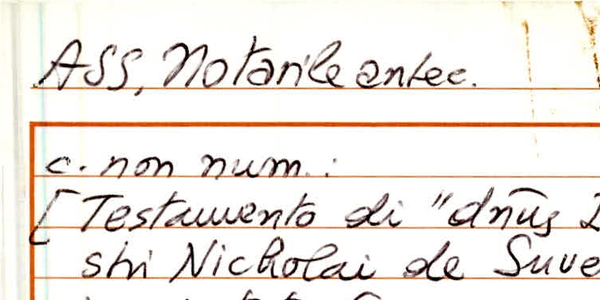 ASS, Notarile antec.
c. non num.:
[Testamento di "dn̄us
stri Nicholai de Suve